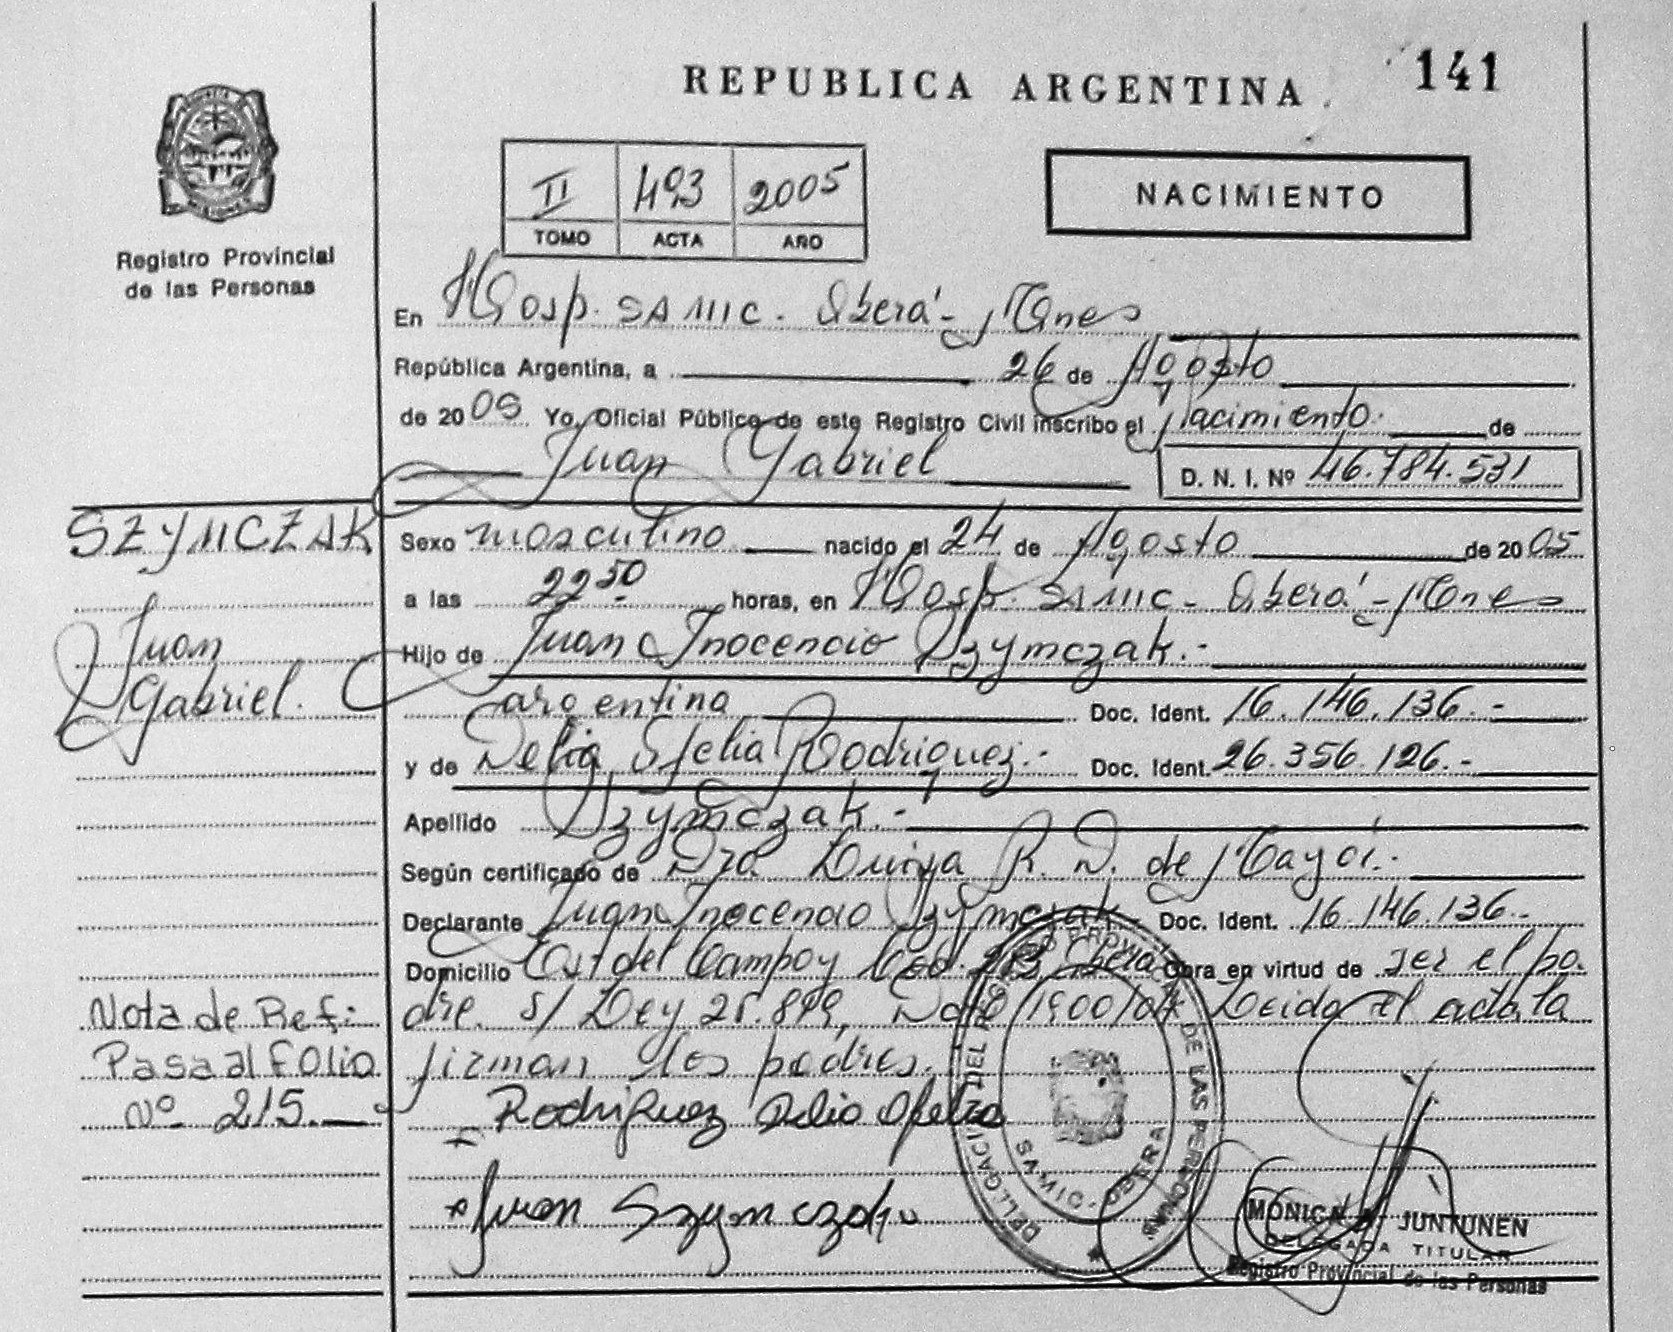 REPUBLICA ARGENTINA 141
II 493 2005
TOMO ACTA AÑO
NACIMIENTO
Registro Provincial
de las Personas
En Hosp. SAMIC. Oberá - Mnes
República Argentina, a 26 de Agosto
de 2005 Yo, Oficial Público de este Registro Civil inscribo el Nacimiento. de
Juan Gabriel D. N. I. Nº 46.784.531
SZYMCZAK
Juan
Gabriel.
Sexo masculino nacido el 24 de Agosto de 2005
a las 22 50 horas, en Hosp. SAMIC - Oberá - Mnes
Hijo de Juan Inocencio Szymczak.-
argentino Doc. Ident. 16.146.136.-
y de Delia Ofelia Rodriguez.- Doc. Ident. 26.356.126.-
Apellido Szymczak.-
Según certificado de Dra. R. D. de
Declarante Juan Inocencio Szymczak Doc. Ident. 16.146.136.-
Domicilio del Campo y Oberá Obra en virtud de ser el pa
dre. s/ Ley 25. Leida el acta la
firman los padres.
Nota de Ref:
Pasa al FOLIO
Nº 215.-
Rodriguez Delia Ofelia
Juan Szymczak
DELEGACION DEL REGISTRO PROVINCIAL DE LAS PERSONAS
OBERA
MONICA JUNTUNEN
DELEGADA TITULAR
Registro Provincial de las Personas